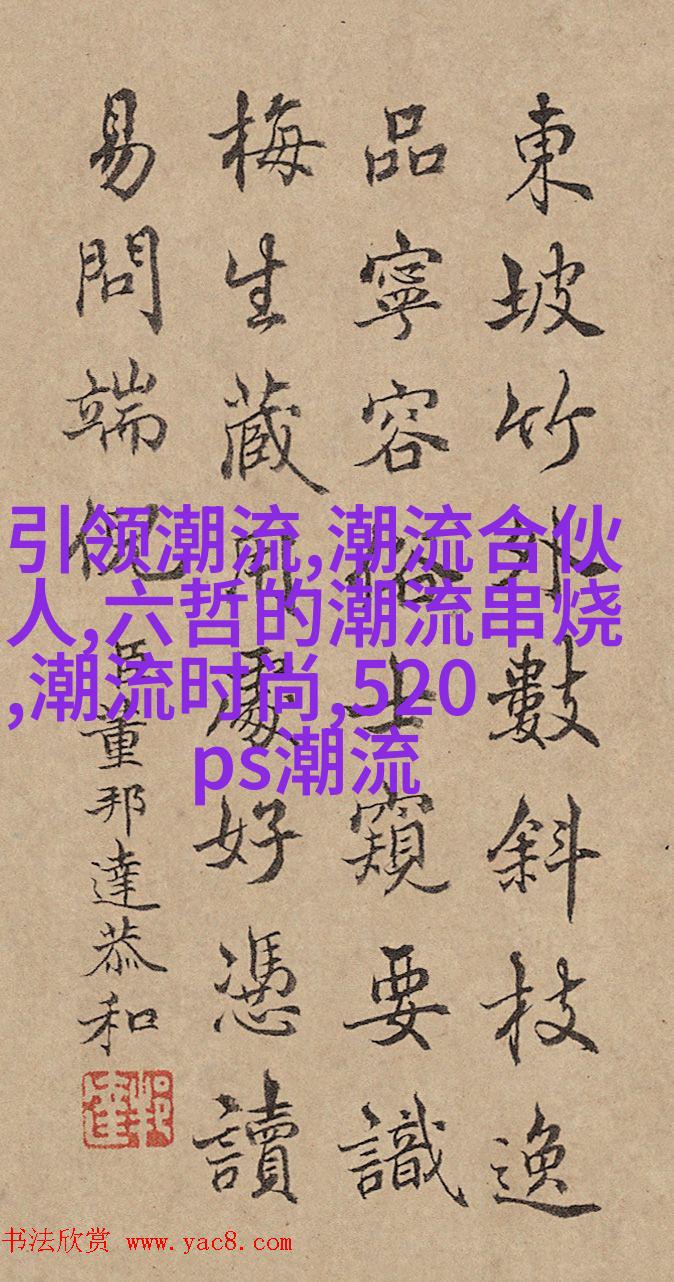 東坡竹外數斜枝逸
品寧容俗士窺要識
梅生藏用處好憑讀
易問端倪
臣董邦達恭和
引领潮流,潮流合伙
人,六哲的潮流串烧
,潮流时尚,520
ps潮流
书法欣赏 www.yac8.com